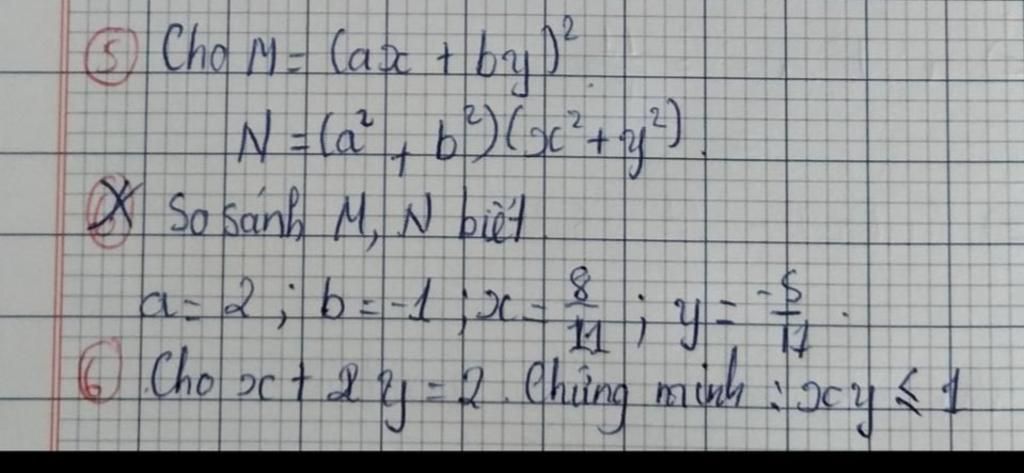 ⑤ Cho M = (ax + by)².
N = (a² + b²)(x² + y²).
So sánh M, N biết
a = 2 ; b = -1 ; x = 8/11 ; y = -5/17.
⑥ Cho x + 2y = 2. Chứng minh : xy ≤ 1